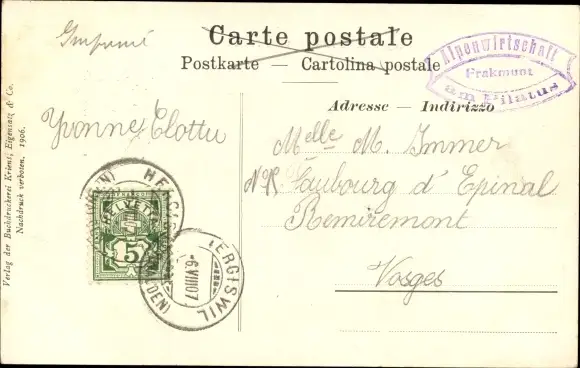 Imprimé
Carte postale
Postkarte — Cartolina postale
Alpenwirtschaft
Frakmunt
am Pilatus
Adresse — Indirizzo
Yvonne Clottu
Melle M. Immer
Faubourg d'Epinal
Remiremont
Vosges
HELVETIA
5
HERGISWIL
-6.VIII.07
Verlag der Buchdruckerei Kriens, Eigensatz & Co.
Nachdruck verboten, 1906.